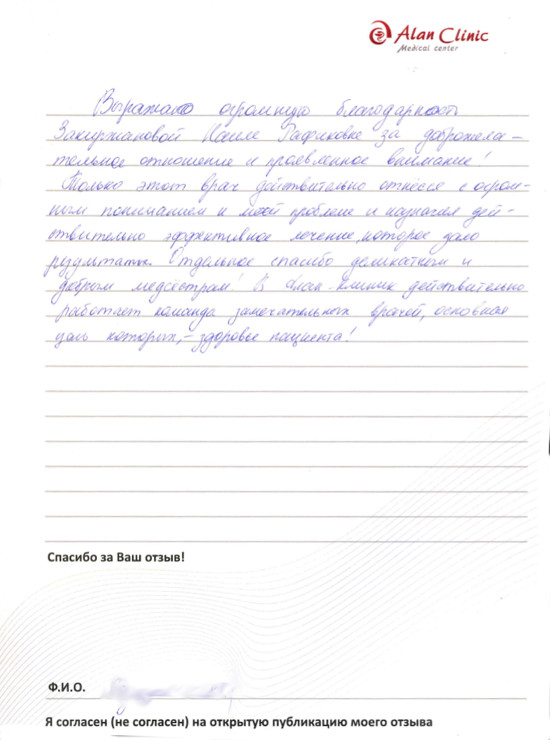 Alan Clinic
Medical center
Выражаю огромную благодарность
Закиржановой Наиле Рафиковне за доброжела-
тельное отношение и проявленное внимание!
Только этот врач действительно отнесся с огром-
ным пониманием к моей проблеме и назначил дей-
ствительно эффективное лечение, которое дало
результаты. Отдельное спасибо деликатным и
добрым медсестрам! В Алан-клиник действительно
работает команда замечательных врачей, основная
цель которых, - здоровье пациента!
Спасибо за Ваш отзыв!
Ф.И.О.
Я согласен (не согласен) на открытую публикацию моего отзыва